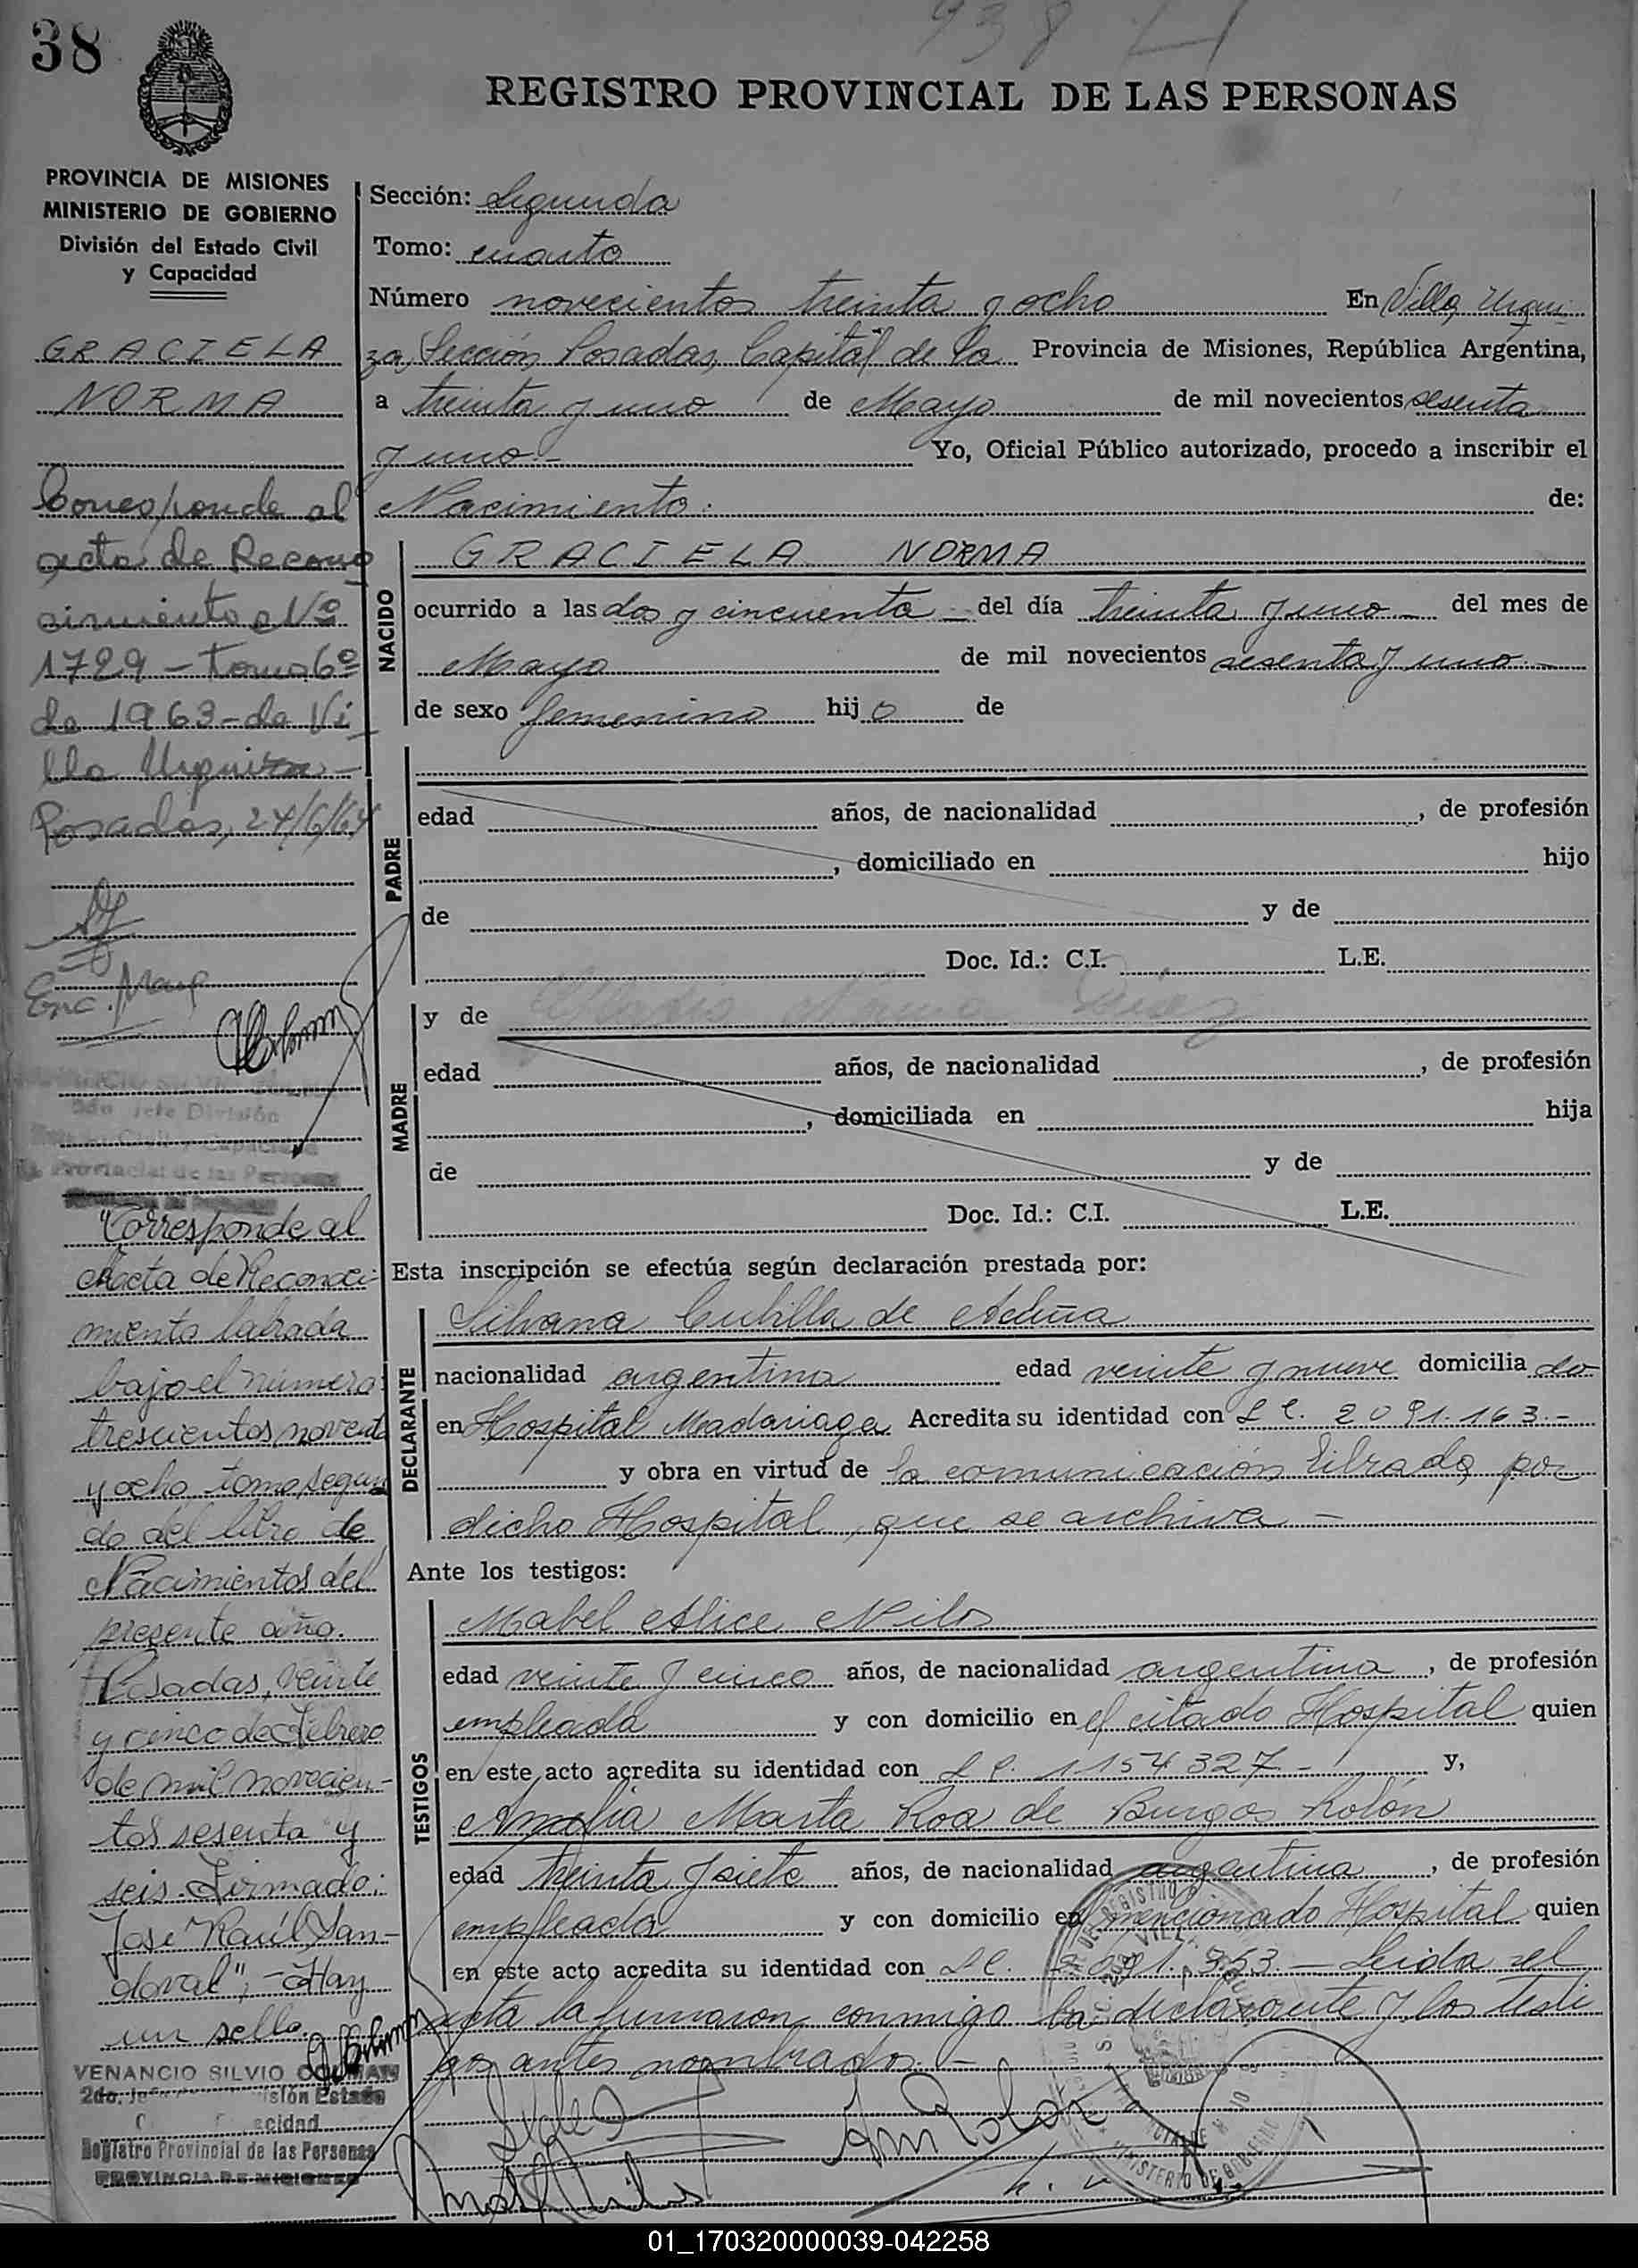 38
938
REGISTRO PROVINCIAL DE LAS PERSONAS
PROVINCIA DE MISIONES
MINISTERIO DE GOBIERNO
División del Estado Civil
y Capacidad
GRACIELA
NORMA
Corresponde al
acta de Recono
cimiento Nº
1729 - Tomo 6º
de 1963 - de Vi
lla Urquiza -
Posadas, 24/6/64
Enc.
2do Jefe División
Provincial de las Personas
"Corresponde al
Acta de Reconoci-
miento labrada
bajo el número
trescientos noventa
y ocho, tomo segun
do del libro de
Nacimientos del
presente año.
Posadas, veinte
y cinco de Febrero
de mil novecien-
tos sesenta y
seis. Firmado:
José Raúl San-
doval", - Hay
un sello.
VENANCIO SILVIO
2do. Estado
Registro Provincial de las Personas
PROVINCIA DE MISIONES
Sección: Segunda
Tomo: cuarto
Número novecientos treinta y ocho En Villa Urqui
za, Sección Posadas, Capital de la Provincia de Misiones, República Argentina,
a treinta y uno de Mayo de mil novecientos sesenta
y uno.- Yo, Oficial Público autorizado, procedo a inscribir el
Nacimiento. de:
NACIDO
GRACIELA NORMA
ocurrido a las dos y cincuenta - del día treinta y uno - del mes de
Mayo de mil novecientos sesenta y uno.-
de sexo femenino hijo de
PADRE
edad años, de nacionalidad , de profesión
, domiciliado en hijo
de y de
Doc. Id.: C.I. L.E.
MADRE
y de
edad años, de nacionalidad , de profesión
, domiciliada en hija
de y de
Doc. Id.: C.I. L.E.
Esta inscripción se efectúa según declaración prestada por:
DECLARANTE
Silvana Cubilla de
nacionalidad argentina edad veinte y nueve domicilia da
en Hospital Madariaga Acredita su identidad con L C. 2091.163.-
y obra en virtud de la comunicación librada por
dicho Hospital, que se archiva -
Ante los testigos:
TESTIGOS
Mabel Alice
edad veinte y cinco años, de nacionalidad argentina , de profesión
empleada y con domicilio en el citado Hospital quien
en este acto acredita su identidad con L C. 1154327 - y,
Amelia Marta Roa de Burgos Rolón
edad treinta y siete años, de nacionalidad argentina , de profesión
empleada y con domicilio en mencionado Hospital quien
en este acto acredita su identidad con L C. - Leida el
acta la firmaron conmigo la declarante y los testi
gos antes nombrados. -
MINISTERIO DE GOBIERNO
01_170320000039-042258